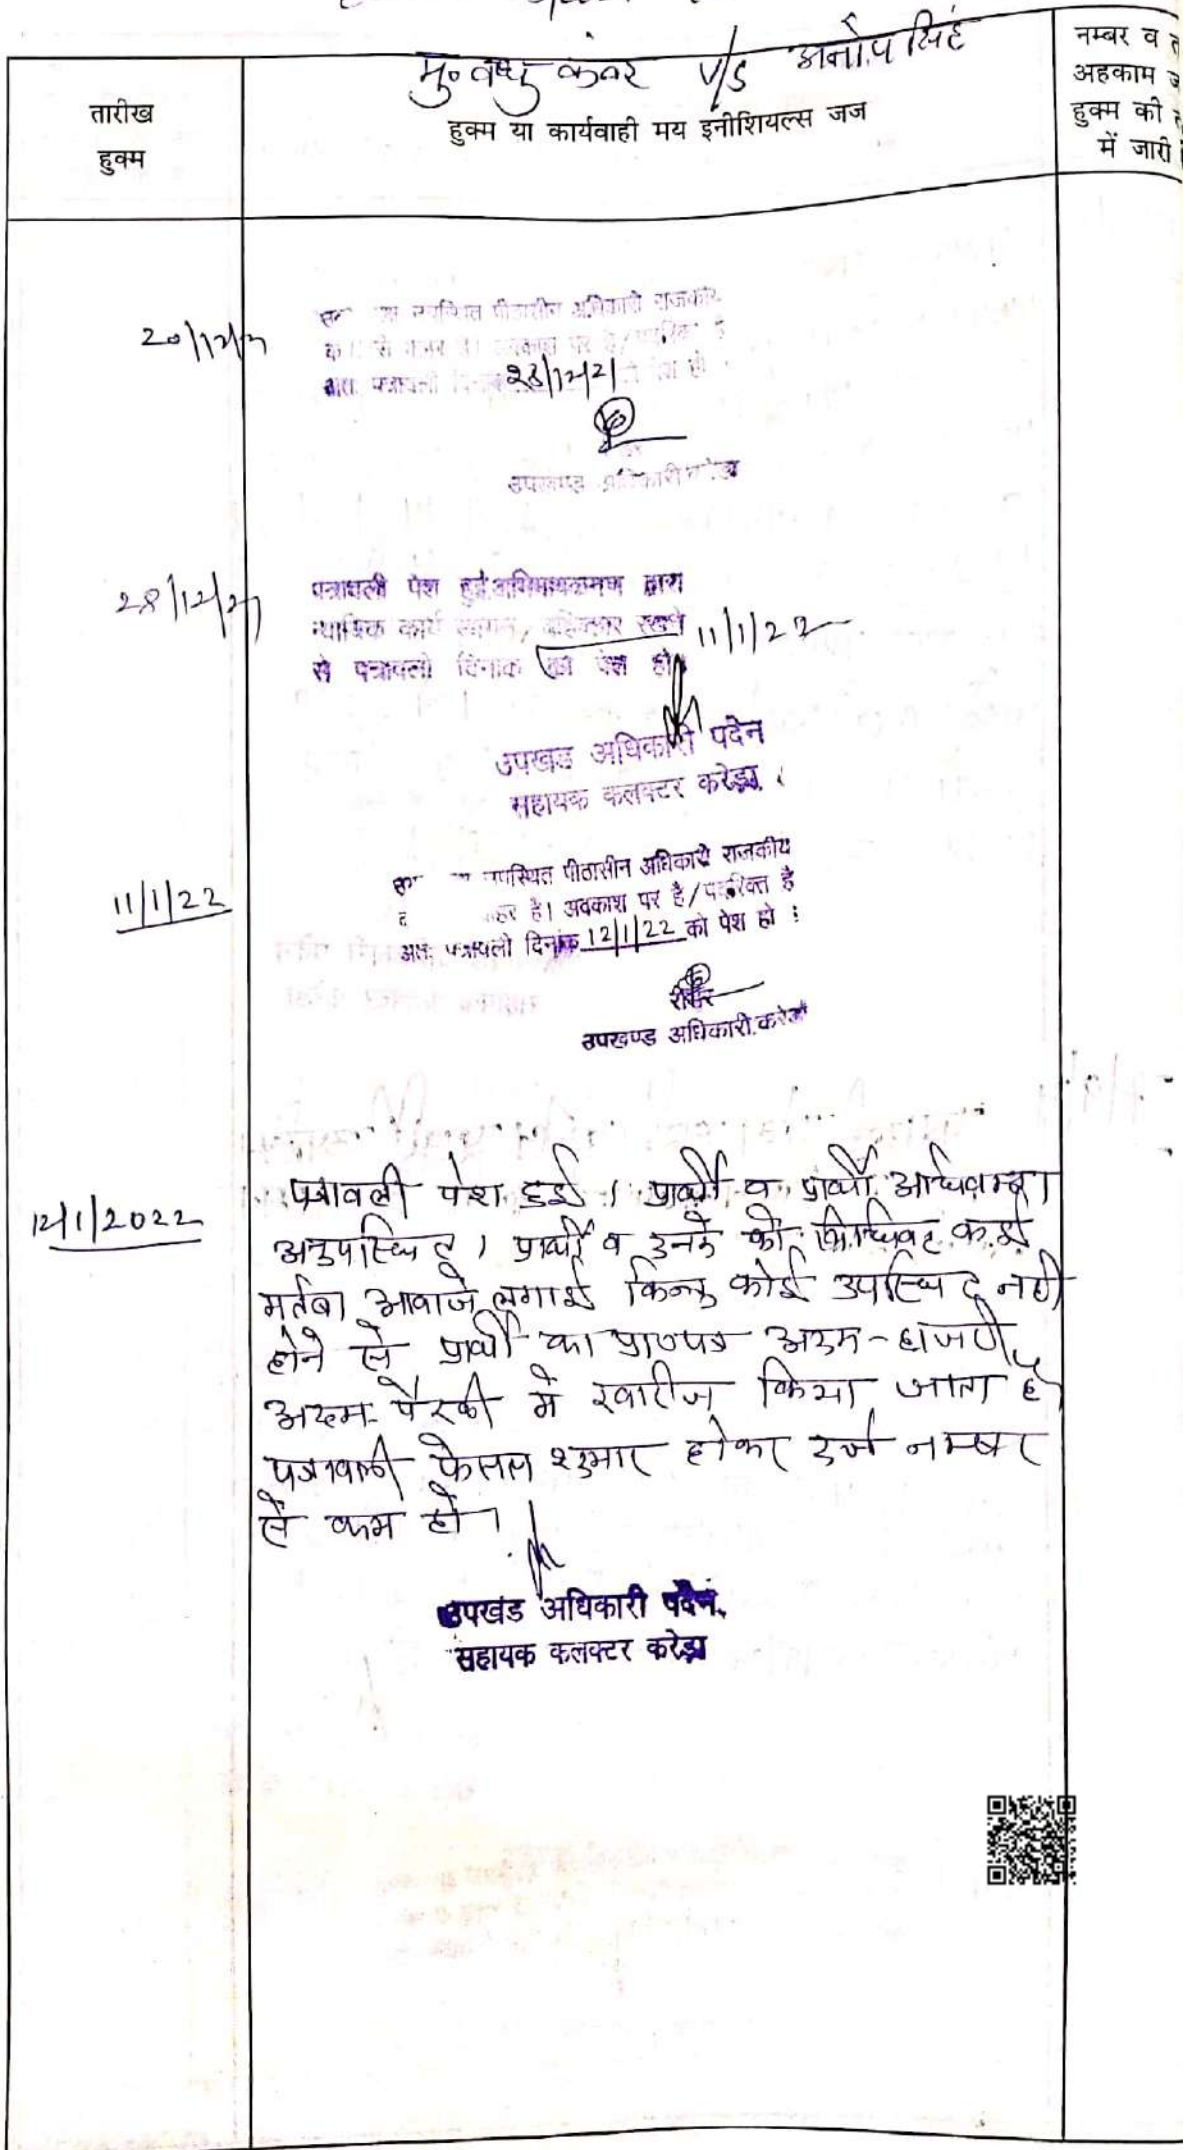 मु० वधु कंवर V/S अनोप सिंह
तारीख
हुक्म
हुक्म या कार्यवाही मय इनीशियल्स जज
नम्बर व
अहकाम
हुक्म की
में जारी
20/12/21
पीठासीन अधिकारी राजकीय
पर है/
पत्रावली 28/12/21 पेश हो
उपखण्ड अधिकारी
28/12/21
पत्रावली पेश हुई अभिभाषकगण द्वारा
न्यायिक कार्य स्थगन, बहिष्कार रखने
से पत्रावली दिनांक 11/1/22 को पेश हो
उपखंड अधिकारी पदेन
सहायक कलक्टर करेड़ा
11/1/22
उपस्थित पीठासीन अधिकारी राजकीय
है। अवकाश पर है/पदरिक्त है
अतः पत्रावली दिनांक 12/1/22 को पेश हो
रीडर
उपखण्ड अधिकारी करेड़ा
12/1/2022
पत्रावली पेश हुई। प्रार्थी व प्रार्थी अधिवक्ता
अनुपस्थित। प्रार्थी व उनके को कई
मर्तबा आवाजे लगाई किन्तु कोई उपस्थित नही
होने से प्रार्थी का प्रा०पत्र अदम-हाजरी
अदम पैरवी में खारीज किया जाता है
पत्रावली फैसल शुमार होकर दर्ज नम्बर
से कम हो।
उपखंड अधिकारी पदेन
सहायक कलक्टर करेड़ा